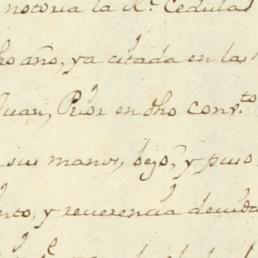 notoria la Rl. Cedula
ho año, ya citada en las
Juan, Prior en dho convto
sus manos, bejo, y puso
nto, y reverencia devida